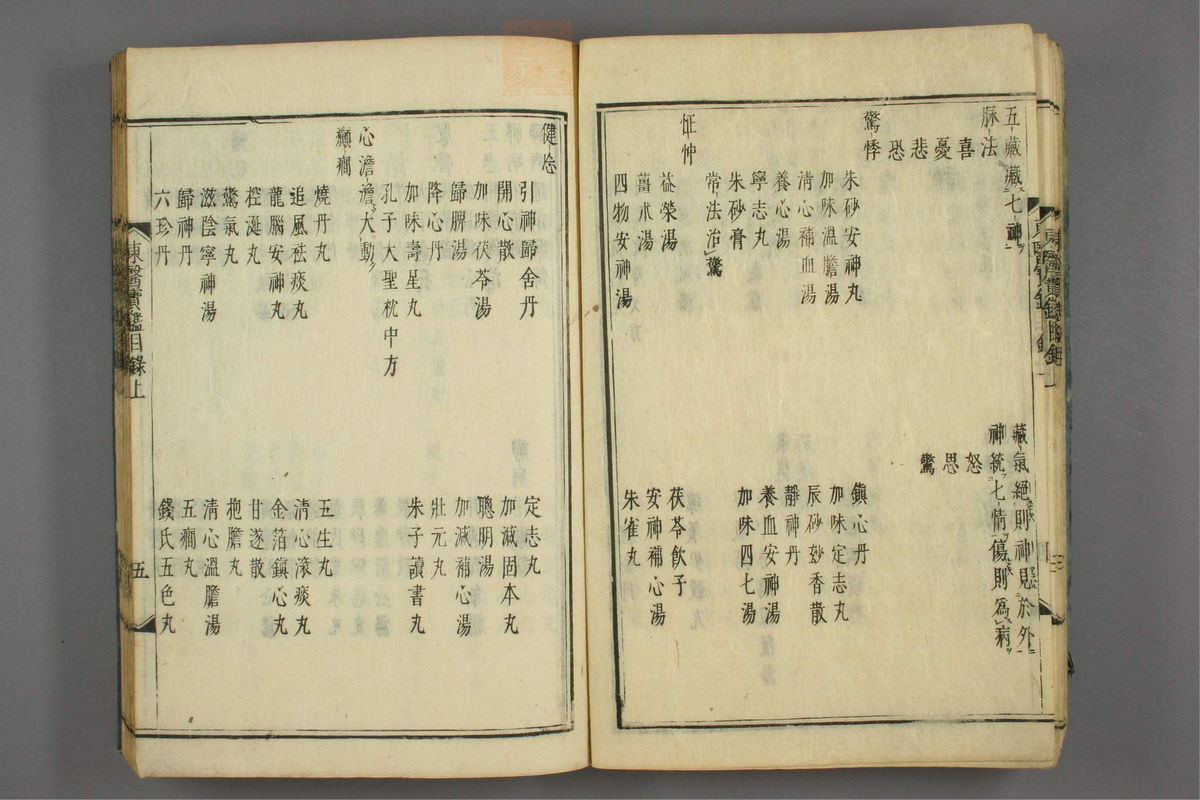 五藏藏七神 藏氣絕則神見於外
脉法 神統七情傷則爲病
喜 怒
憂 思
悲 驚
恐
驚悸
朱砂安神丸 鎭心丹
加味溫膽湯 加味定志丸
清心補血湯 辰砂妙香散
養心湯 靜神丹
寧志丸 養血安神湯
朱砂膏 加味四七湯
常法治驚
怔忡
益榮湯 茯苓飮子
薑朮湯 安神補心湯
四物安神湯 朱雀丸
健忘
引神歸舍丹 定志丸
開心散 加減固本丸
加味茯苓湯 聰明湯
歸脾湯 加減補心湯
降心丹 壯元丸
加味壽星丸 朱子讀書丸
孔子大聖枕中方
心澹澹大動
癲癎
燒丹丸 五生丸
追風祛痰丸 清心滾痰丸
龍腦安神丸 金箔鎭心丸
控涎丸 甘遂散
驚氣丸 抱膽丸
滋陰寧神湯 清心溫膽湯
歸神丹 五癎丸
六珍丹 錢氏五色丸
東醫寶鑑目錄上 五